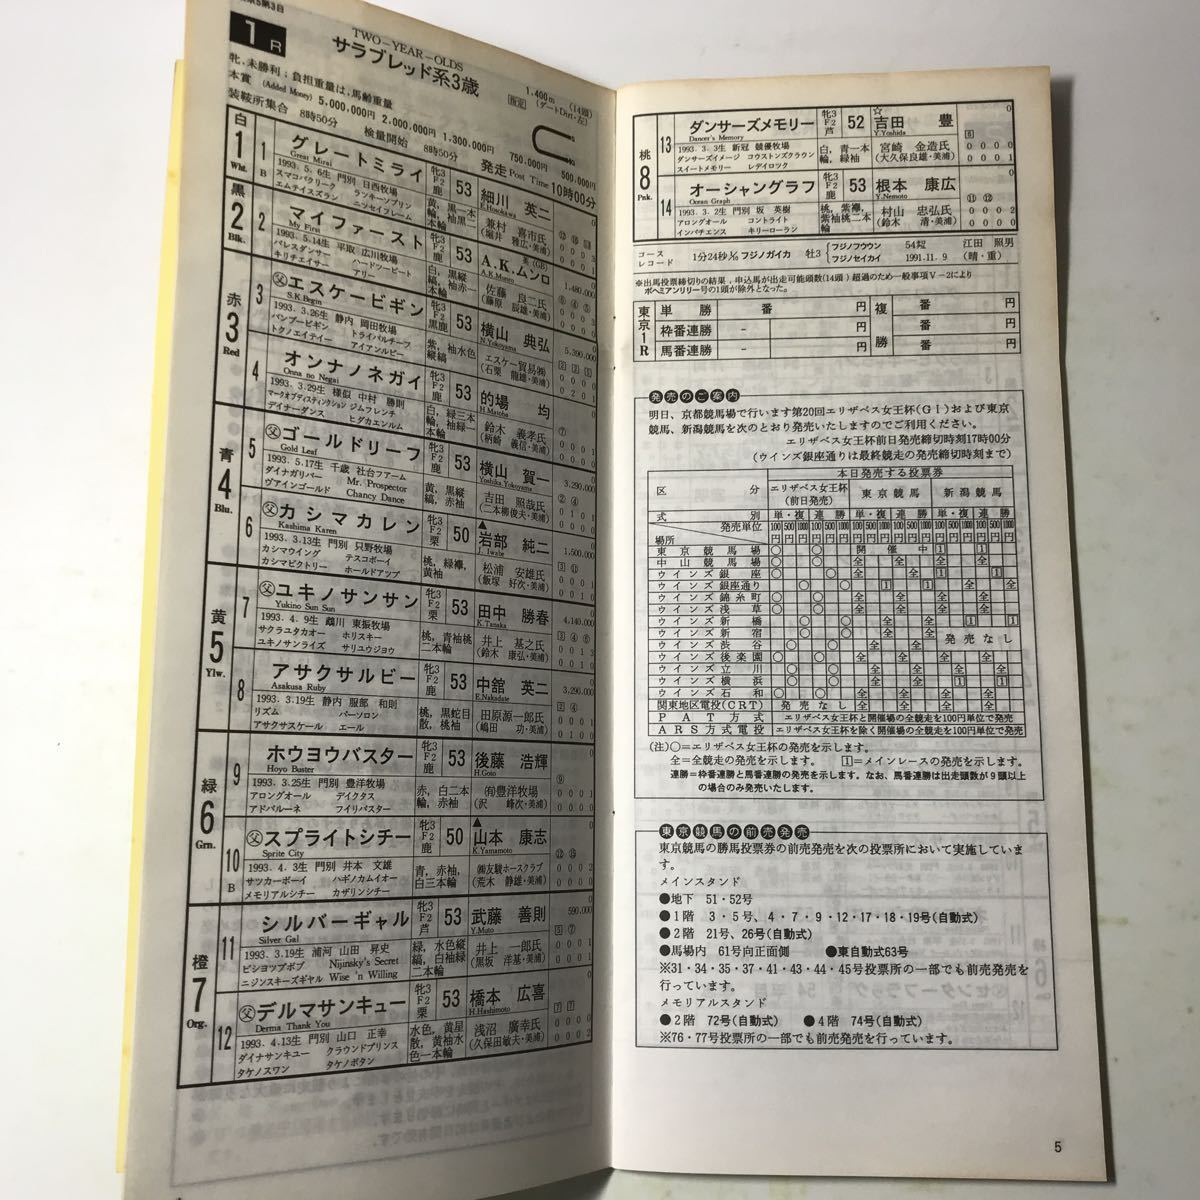 1R
TWO-YEAR-OLDS
サラブレッド系3歳
牝,未勝利;負担重量は,馬齢重量
1.400m
(14頭)
指定
(ダートDirt・左)
本賞 (Added Money) 5,000,000円 2,000,000円 1,300,000円 750,000円 500,000円
装鞍所集合 8時50分 検量開始 8時50分 発走 Post Time 10時00分
白 1 Wht.
1 B グレートミライ 牝3 53 細川 英二
Great Mirai F2鹿 E.Hosokawa
1993. 5. 6生 門別 日西牧場
スマコバクリーク ランキーソブリン
エムテイズスラン ニッセイフレーム
黒 2 Blk.
2 マイファースト 牝3 53 A.K.ムンロ
My First F2鹿 A.K.Munro 1,480,000
1993. 5.14生 平取 広川牧場 佐藤 良二氏
パレスダンサー ハードツービート
キリチエイサー アリー
赤 3 Red
3 父エスケービギン 牝3 53 横山 典弘
S.K.Begin F2黒鹿 N.Yokoyama 5,390,000
1993. 3.26生 静内 岡田牧場 エスケー貿易㈱
バンブービギン トライバルチーフ
トクノエイティー アイアンルビー
4 オンナノネガイ 牝3 53 的場 均
Onna no Negai F2鹿 H.Matoba
1993. 3.29生 様似 中村 勝則 鈴木 義孝氏
マークオブディスティンクション ジムフレンチ (柄崎 義信・美浦)
デイナーダンス ヒダカエンルム
青 4 Blu.
5 父ゴールドリーフ 牝3 53 横山 賀一
Gold Leaf F2鹿 Yoshika.Yokoyama 3,290,000
1993. 5.17生 千歳 社台ファーム 吉田 照哉氏
ダイナガリバー Mr. Prospector (二本柳俊夫・美浦)
ヴアインゴールド Chancy Dance
6 父カシマカレン 牝3 50 ▲岩部 純二
Kashima Karen F2栗 J. Iwabe 1,500,000
1993. 3.13生 門別 只野牧場 桃,緑襷,黄袖 松浦 安雄氏
カシマウイング テスコボーイ (飯塚 好次・美浦)
カシマビクトリー ホールドアップ
黄 5 Ylw.
7 父ユキノサンサン 牝3 53 田中 勝春
Yukino Sun Sun F2栗 K.Tanaka 4,140,000
1993. 4. 9生 鵡川 東振牧場 桃,青袖桃二本輪 井上 基之氏
サクラユタカオー ホリスキー (鈴木 康弘・美浦)
ユキノサンライズ サリユウジヨウ
8 アサクサルビー 牝3 53 中舘 英二
Asakusa Ruby F2鹿 E.Nakadate 3,290,000
1993. 3.19生 静内 服部 和則 桃,黒蛇目散,桃袖 田原源一郎氏
リズム パーソロン (嶋田 功・美浦)
アサクサスケール エール
緑 6 Grn.
9 ホウヨウバスター 牝3 53 後藤 浩輝
Hoyo Buster F2鹿 H.Goto
1993. 3.25生 門別 豊洋牧場 赤,白二本輪,赤袖 ㈲豊洋牧場
アロングオール デイクタス (沢 峰次・美浦)
アドバルーネ フイリバスター
10 B 父スプライトシチー 牝3 50 ▲山本 康志
Sprite City F2栗 K.Yamamoto
1993. 4. 3生 門別 井本 文雄 青,赤袖,白三本輪 ㈱友駿ホースクラブ
サツカーボーイ ハギノカムイオー (荒木 静雄・美浦)
メモリアルシチー カザリンシチー
橙 7 Org.
11 シルバーギャル 牝3 53 武藤 善則
Silver Gal F2芦 Y.Muto 590,000
1993. 3.19生 浦河 山田 昇史 緑,水色縦縞,白袖緑二本輪 井上 一郎氏
ビシヨツプボブ Nijinsky's Secret (黒坂 洋基・美浦)
ニジンスキーズギヤル Wise 'n Willing
12 父デルマサンキュー 牝3 53 橋本 広喜
Derma Thank You F2栗 H.Hashimoto
1993. 4.13生 門別 山口 正幸 水色,黄星散,黄袖水色一本輪 浅沼 廣幸氏
ダイナサンキユー クラウンドプリンス (久保田敏夫・美浦)
タケノスワン タケノボタン
桃 8 Pnk.
13 ダンサーズメモリー 牝3 52 ☆吉田 豊
Dancer's Memory F2芦 Y.Yoshida
1993. 3. 3生 新冠 競優牧場 白,青一本輪,緑袖 宮崎 金造氏
ダンサーズイメージ コウストンズクラウン (大久保良雄・美浦)
スイートメモリー レデイロツク
14 オーシャングラフ 牝3 53 根本 康広
Ocean Graph F2鹿 Y.Nemoto
1993. 3. 2生 門別 坂 英樹 桃,紫襷,紫袖桃二本輪 村山 忠弘氏
アロングオール コントライト (鈴木 清・美浦)
インパチエンス キリーローラン
コースレコード 1分24秒1/10 フジノガイカ 牡3 フジノフウウン フジノセイカイ 54㌔ 1991.11. 9 江田 照男 (晴・重)
※出馬投票締切りの結果,申込馬が出走可能頭数(14頭)超過のため一般事項Ⅴ-2により
ボヘミアンリリー号の1頭が除外となった。
東京1R
単勝 番 円 複勝 番 円
枠番連勝 - 円 番 円
馬番連勝 - 円 番 円
発売のご案内
明日、京都競馬場で行います第20回エリザベス女王杯(GⅠ)および東京
競馬、新潟競馬を次のとおり発売いたしますのでご利用ください。
エリザベス女王杯前日発売締切時刻17時00分
(ウインズ銀座通りは最終競走の発売締切時刻まで)
区分 本日発売する投票券
エリザベス女王杯(前日発売) 東京競馬 新潟競馬
式別 単・複 連勝 単・複 連勝 単・複 連勝
発売単位 100円 500円 1000円
場所
東京競馬場 ○ ○ 開催中 1 1
中山競馬場 ○ ○ 全 全 全 全
ウインズ銀座
ウインズ銀座通り
ウインズ錦糸町
ウインズ浅草
ウインズ新橋
ウインズ新宿
ウインズ渋谷
発売なし
ウインズ後楽園
ウインズ立川
ウインズ横浜
ウインズ石和
関東地区電投(CRT) 発売なし 全 全 全 全
PAT方式 エリザベス女王杯と開催場の全競走を100円単位で発売
ARS方式電投 エリザベス女王杯を除く開催場の全競走を100円単位で発売
(注)○=エリザベス女王杯の発売を示します。
全=全競走の発売を示します。 1=メインレースの発売を示します。
連勝=枠番連勝と馬番連勝の発売を示します。なお、馬番連勝は出走頭数が9頭以上
の場合のみ発売いたします。
東京競馬の前売発売
東京競馬の勝馬投票券の前売発売を次の投票所において実施していま
す。
メインスタンド
●地下 51・52号
●1階 3・5号、4・7・9・12・17・18・19号(自動式)
●2階 21号、26号(自動式)
●馬場内 61号向正面側 ●東自動式63号
※31・34・35・37・41・43・44・45号投票所の一部でも前売発売を
行っています。
メモリアルスタンド
●2階 72号(自動式) ●4階 74号(自動式)
※76・77号投票所の一部でも前売発売を行っています。
5